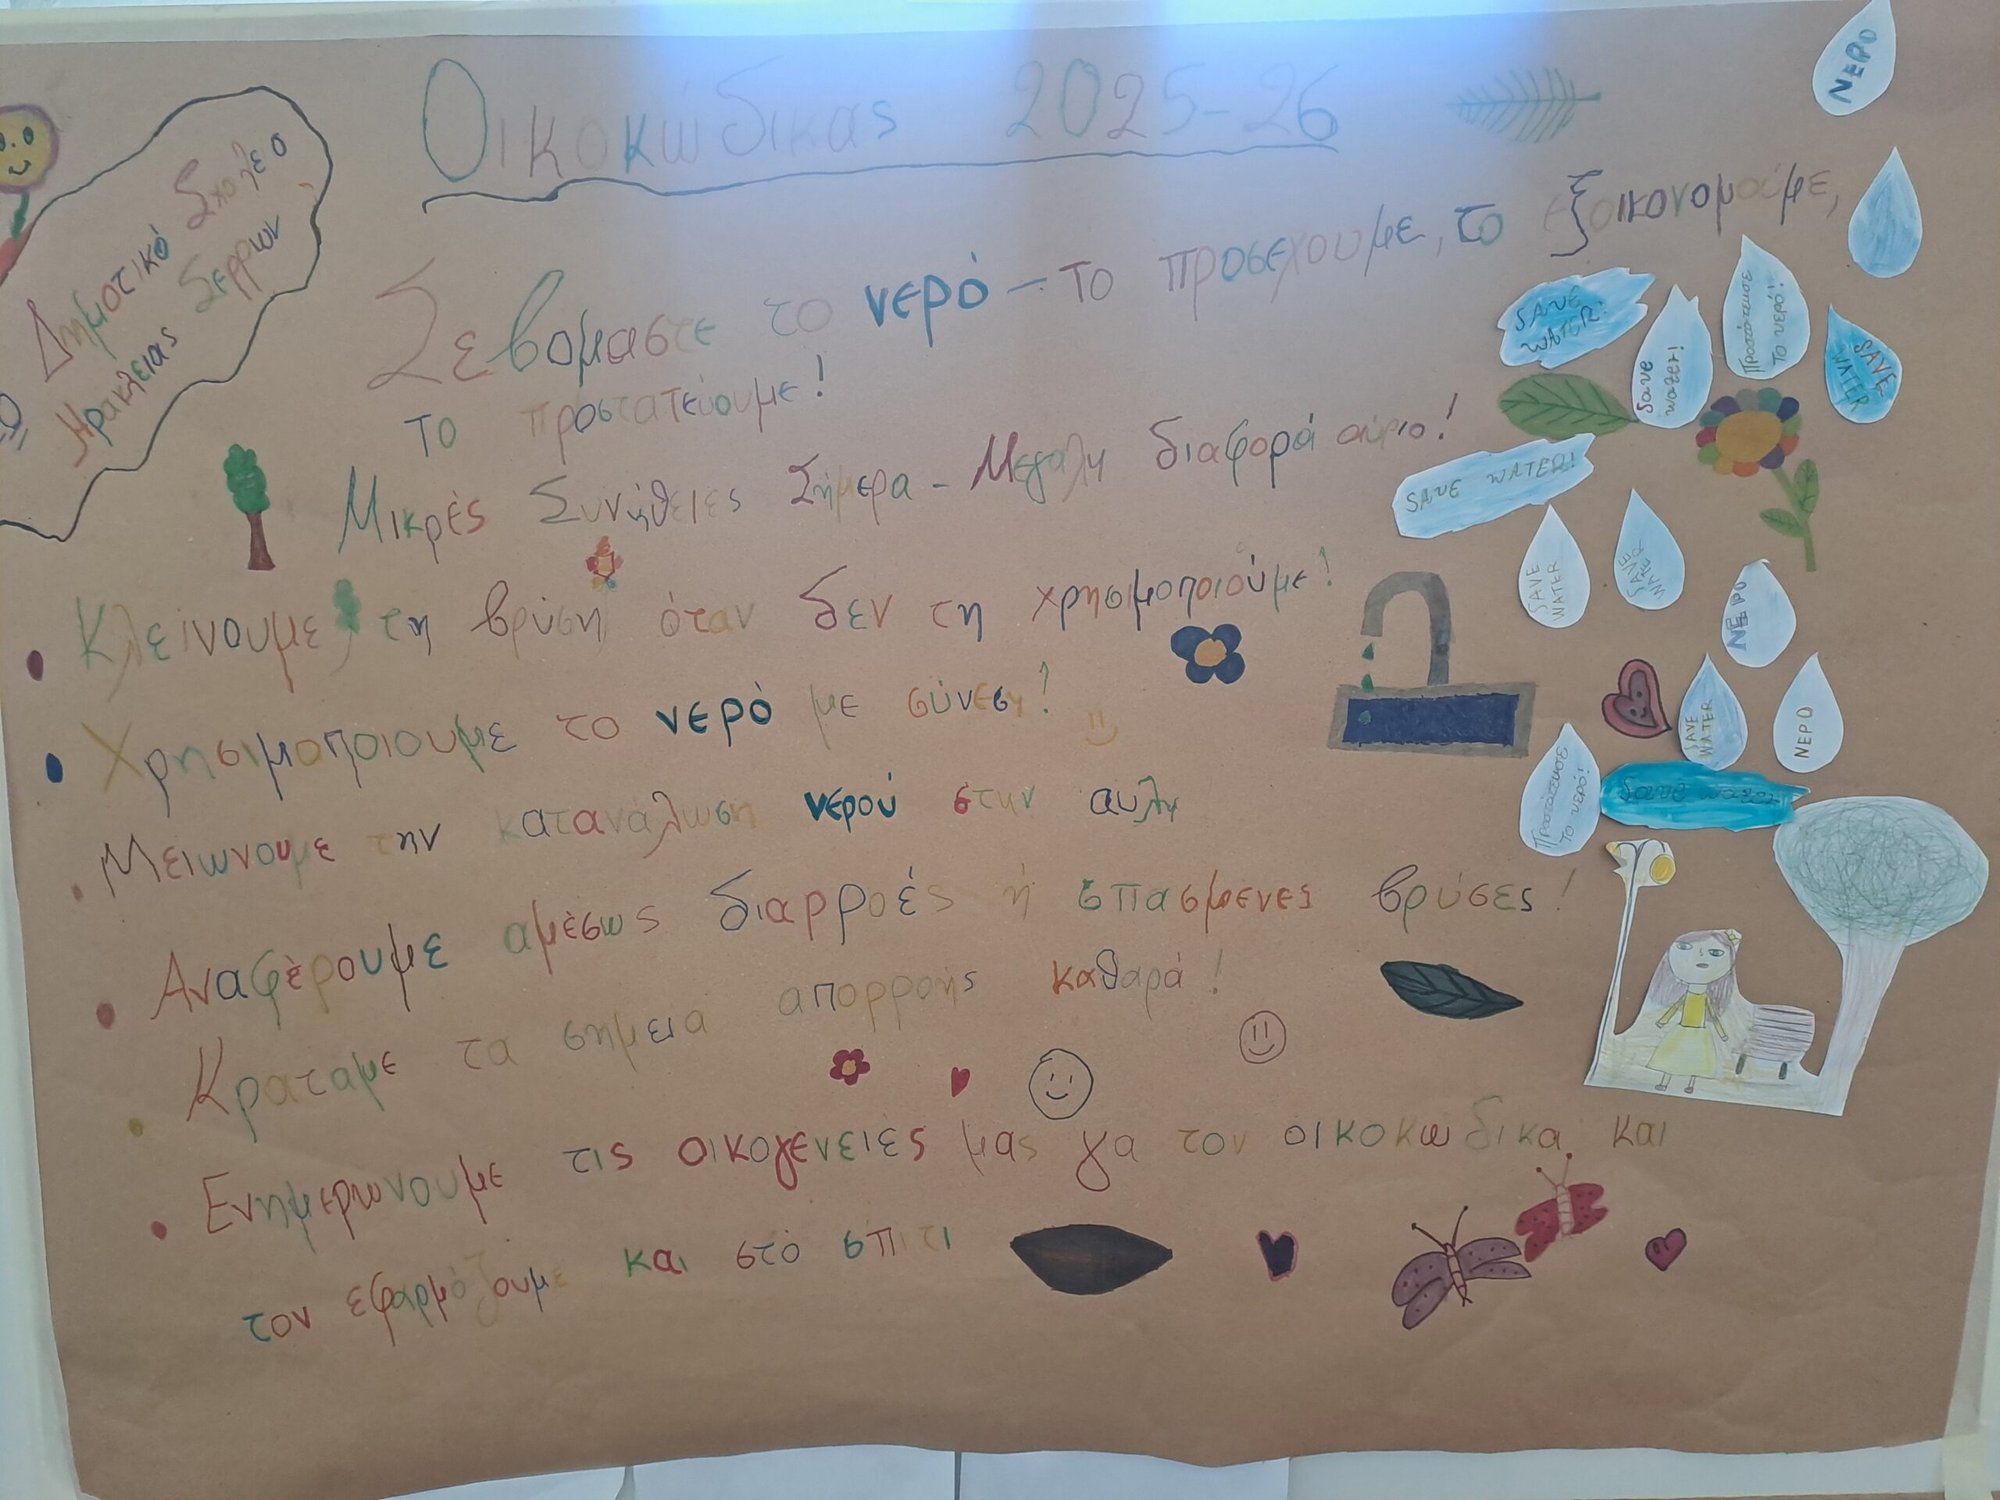 Οικοκώδικας 2025-26
Δημοτικό Σχολεο
Ηρακλειας Σερρων
Σεβομαστε το νερό - το προσεχουμε, το εξοικονομούμε,
το προστατεύουμε!
Μικρές Συνήθειες Σήμερα - Μεγαλη διαφορά αύριο!
Κλείνουμε τη βρύση όταν δεν τη χρησιμοποιούμε!
Χρησιμοποιουμε το νερό με σύνεση!
Μειωνουμε την κατανάλωση νερού στην αυλη
Αναφέρουμε αμέσως διαρροές ή σπασμενες βρύσες!
Κραταμε τα σημεια απορροής καθαρά!
Ενημερωνουμε τις οικογενειές μας γα τον οικοκωδικα και
τον εφαρμόζουμε και στο σπιτι
ΝΕΡΟ
SAVE
WATER!
Save
water!
Προστάτεψε
το νερό!
SAVE
WATER
SAVE WATER!
SAVE
WATER
SAVE
WATER
ΝΕΡΟ
SAVE
WATER
ΝΕΡΟ
Προστάτεψε
το νερό!
Save water